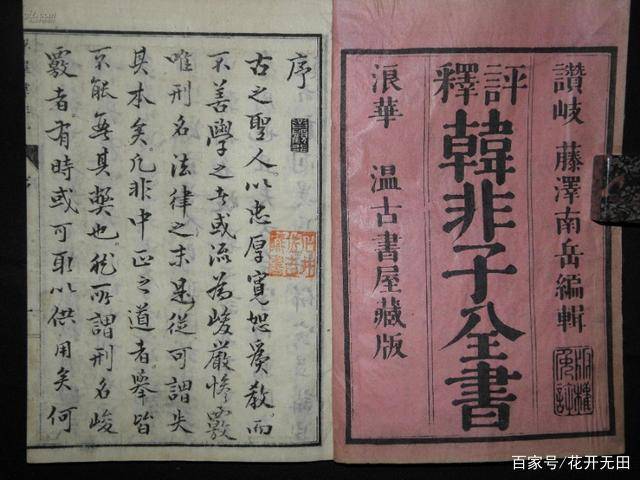 讚岐 藤澤南岳編輯
評釋
韓非子全書
浪華 温古書屋藏版
序
古之聖人以忠厚寬恕爲教而
不善學之者或流爲峻嚴慘覈
唯刑名法律之末是從可謂失
其本矣凡非中正之道者舉皆
不能無其弊也然所謂刑名峻
覈者有時或可取以供用矣何
百家号/花开无田